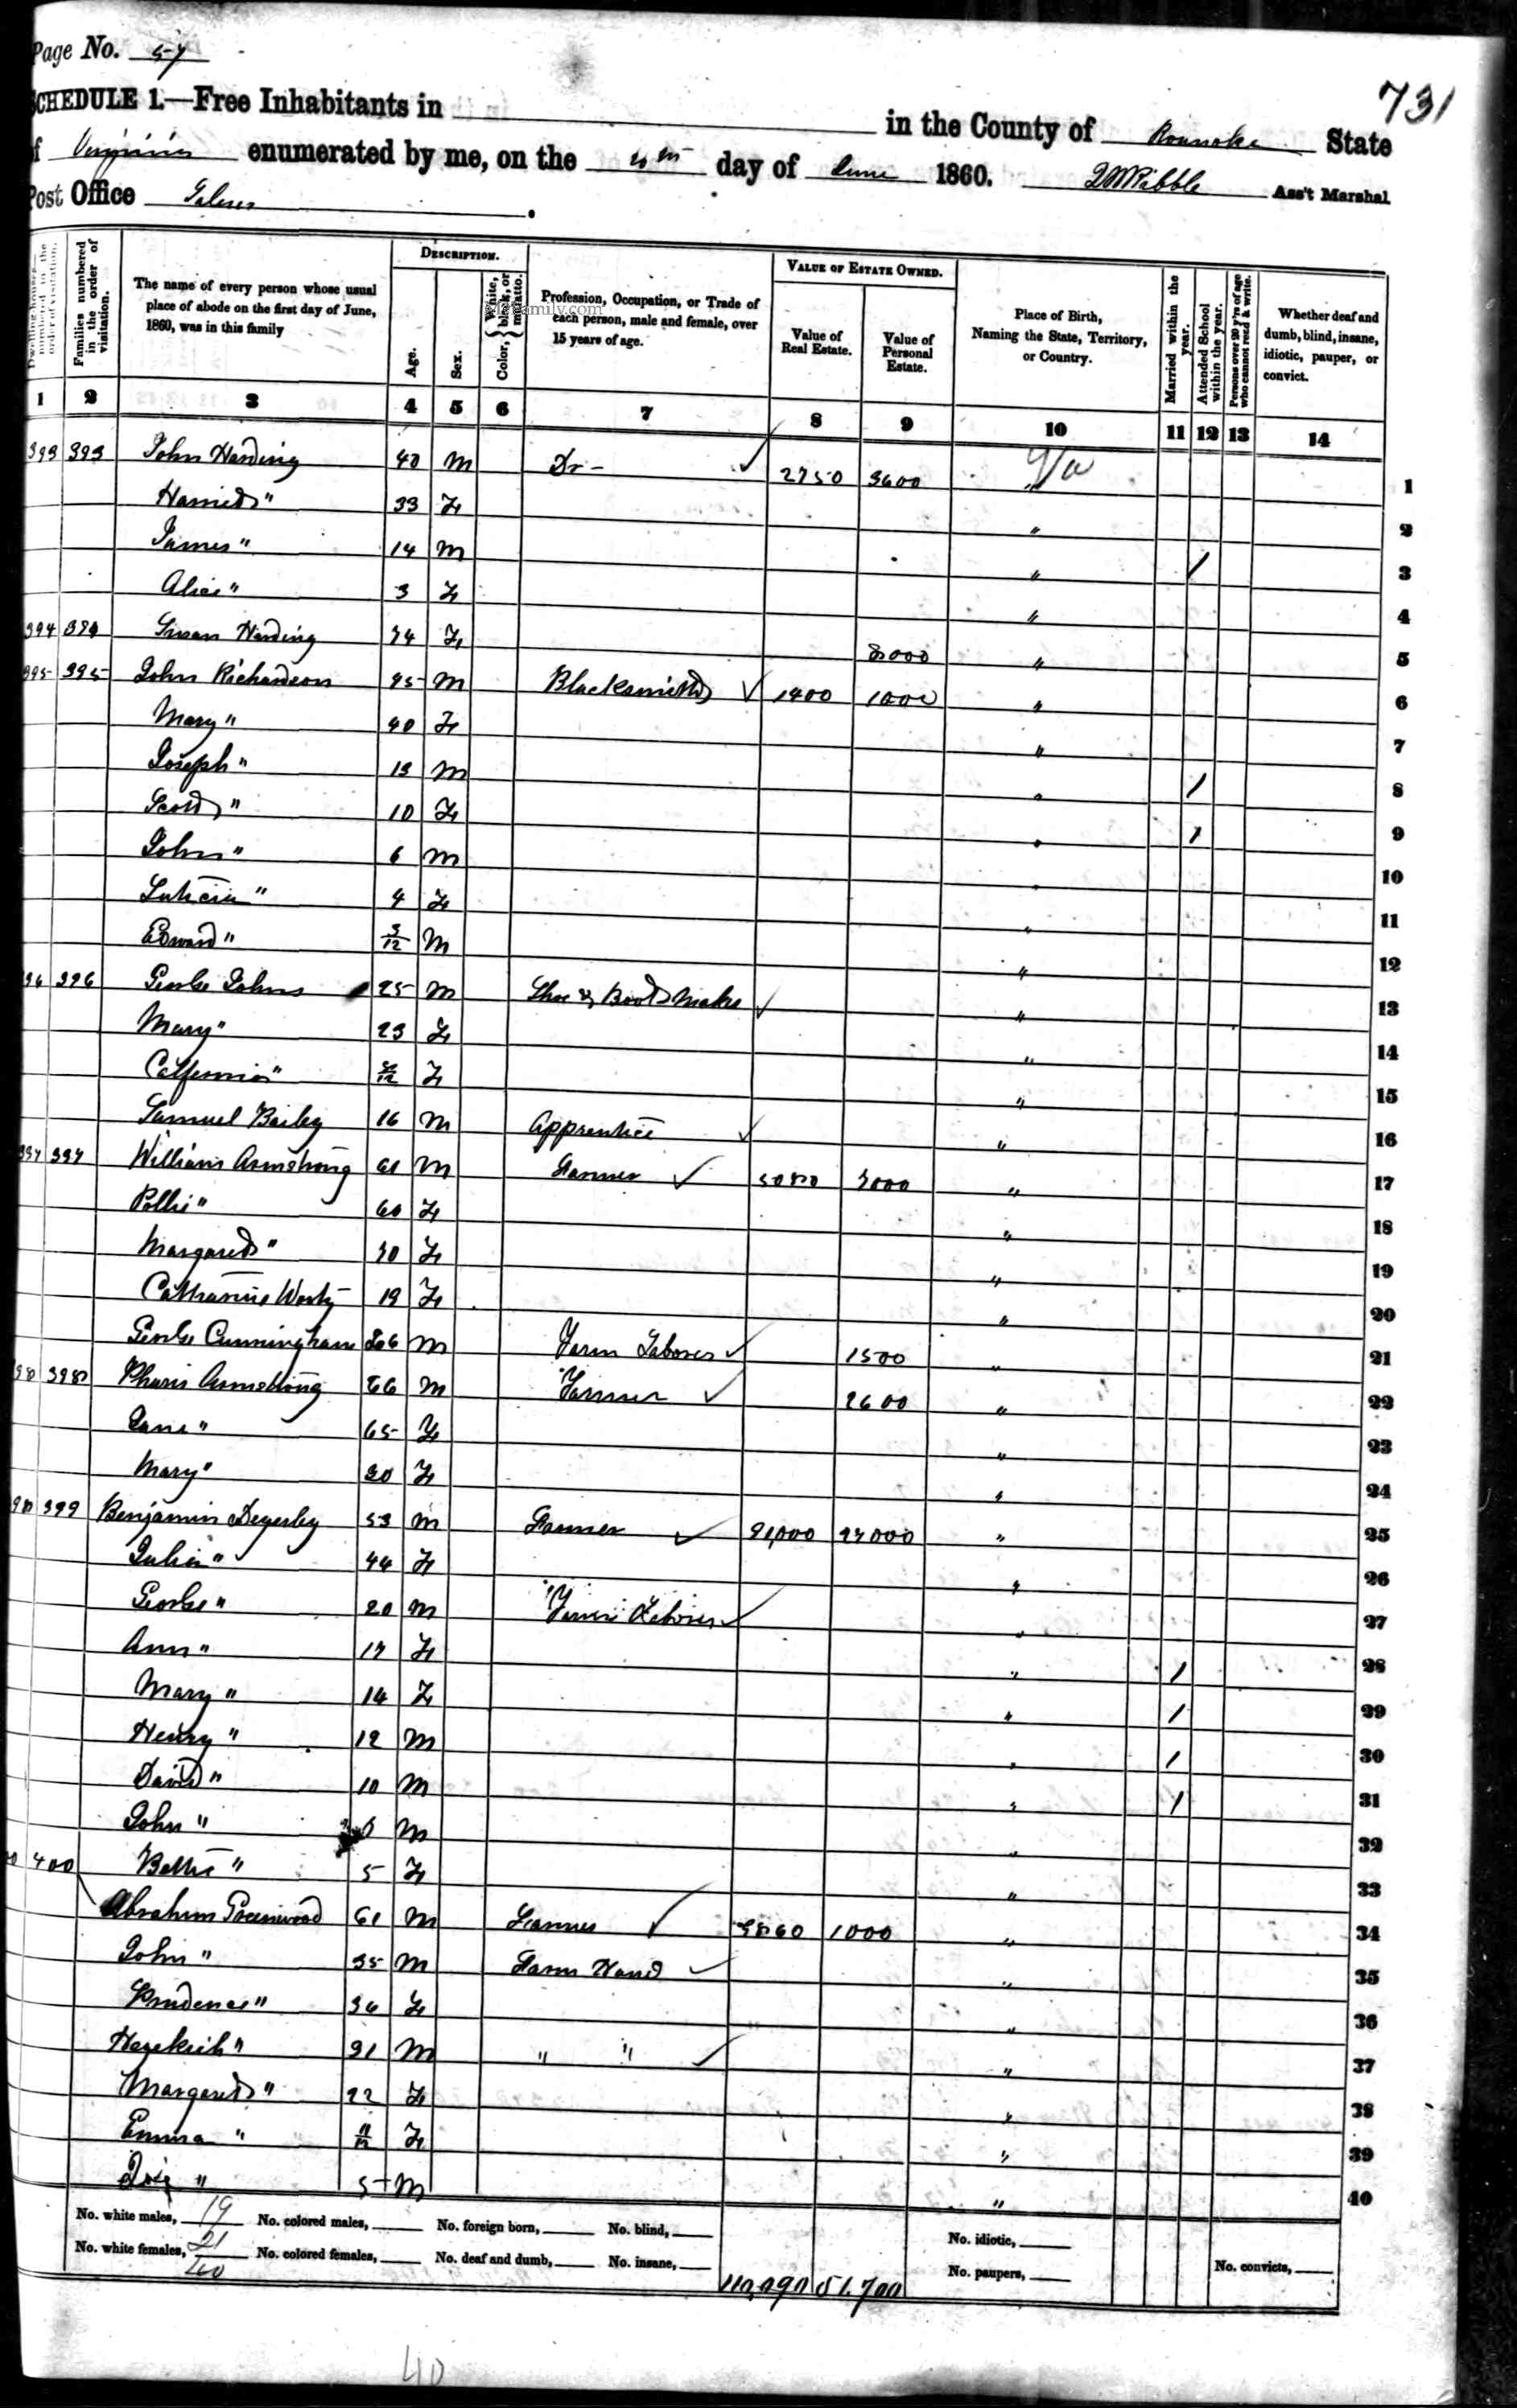 Page No. 57
731
SCHEDULE 1.—Free Inhabitants in in the County of Roanoke State
of Virginia enumerated by me, on the day of June 1860. Ass't Marshal
Post Office Salem .
Dwelling-houses— numbered in the order of visitation.
Families numbered in the order of visitation.
The name of every person whose usual place of abode on the first day of June, 1860, was in this family
DESCRIPTION.
Age.
Sex.
Color, { White, black, or mulatto.
Profession, Occupation, or Trade of each person, male and female, over 15 years of age.
VALUE OF ESTATE OWNED.
Value of Real Estate.
Value of Personal Estate.
Place of Birth, Naming the State, Territory, or Country.
Married within the year.
Attended School within the year.
Persons over 20 y'rs of age who cannot read & write.
Whether deaf and dumb, blind, insane, idiotic, pauper, or convict.
1 2 3 4 5 6 7 8 9 10 11 12 13 14
393 393 John Harding 40 M Dr - 2750 3600 Va 1
Harriet " 33 F " 2
James " 14 M " / 3
Alice " 3 F " 4
394 394 Susan Harding 74 F 8000 " 5
395 395 John Richardson 45 M Blacksmith 1400 1000 " 6
Mary " 40 F " 7
Joseph " 13 M " / 8
" 10 F " / 9
John " 6 M " 10
" 4 F " 11
Edward " 3/12 M " 12
396 396 George Johns 25 M Shoe & Boot Maker " 13
Mary " 23 F " 14
California " F " 15
Samuel Bailey 16 M Apprentice " 16
397 397 William Armstrong 61 M Farmer 3000 " 17
Pollie " 60 F " 18
Margaret " 30 F " 19
Catharine 19 F " 20
George Cunningham M Farm Laborer 1500 " 21
398 398 Armstrong 66 M Farmer 2600 " 22
Jane " 65 F " 23
Mary " 20 F " 24
399 Benjamin Deyerley 53 M Farmer 91,000 27000 " 25
Julia " 44 F " 26
George " 20 M Farm Laborer " 27
Ann " 17 F " / 28
Mary " 14 F " / 29
Henry " 12 M " / 30
David " 10 M " / 31
John " M " 32
400 Bettie " 5 F " 33
Abraham Greenwood 61 M Farmer 1000 " 34
John " 35 M Farm Hand " 35
Prudence " 36 F " 36
Hezekiah " 31 M " " " 37
Margaret " 22 F " 38
Emma " 11/12 F " 39
" 5 M " 40
No. white males, 19 No. colored males, No. foreign born, No. blind, No. idiotic,
No. white females, 21 No. colored females, No. deaf and dumb, No. insane, No. paupers, No. convicts,
40 51,700
40